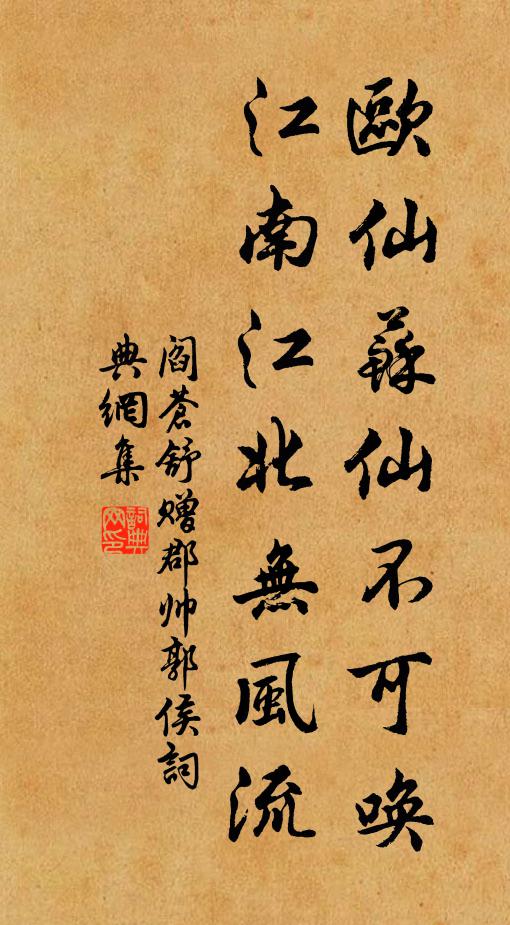 歐仙蘇仙不可喚
江南江北無風流
閻蒼舒贈郡帅郭侯詞
典網集
詞典網印